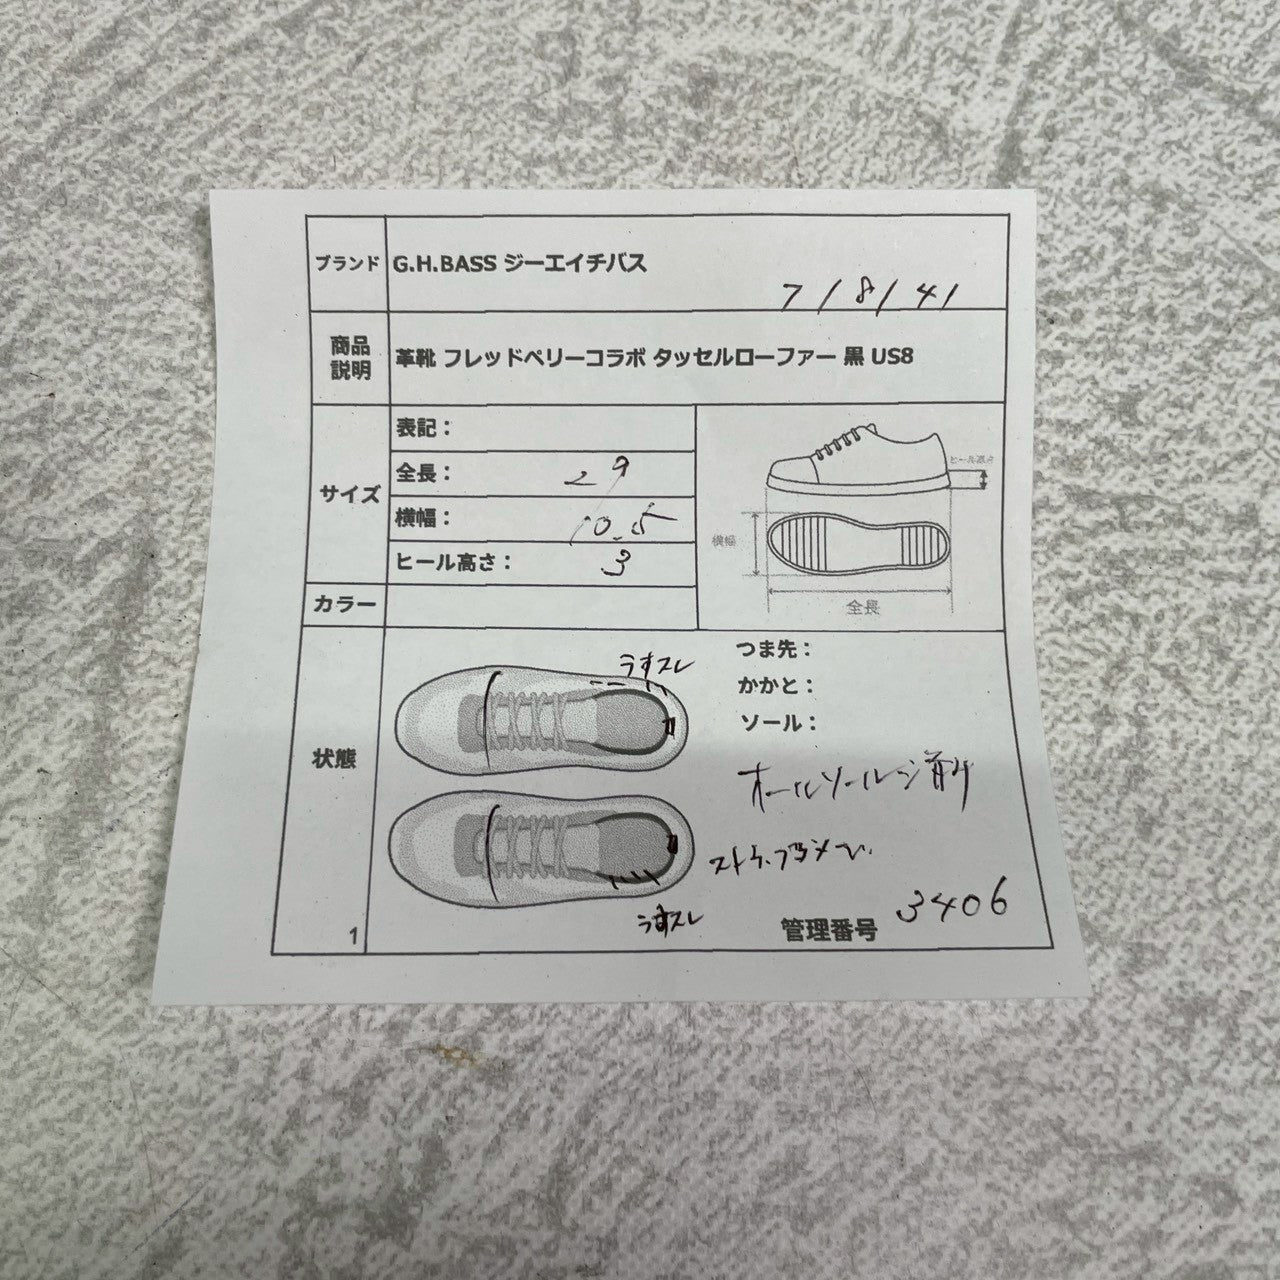 ブランド G.H.BASS ジーエイチバス
7/8/41
商品説明 革靴 フレッドペリーコラボ タッセルローファー 黒 US8
サイズ
表記：
全長： 29
横幅： 10.5
ヒール高さ： 3
ヒール高さ
横幅
全長
カラー
状態
うすスレ
つま先：
かかと：
ソール：
オールソール
うすスレ
管理番号 3406
1